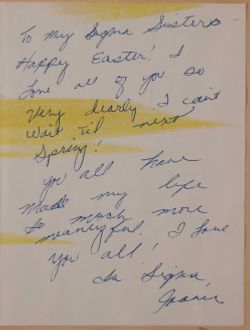 To my Sigma Sisters -
Happy Easter! I
love all of you so
Very dearly. I can't
wait til next
Spring!
You all have
made my life
so much more
meaningful. I love
you all!
In Sigma,